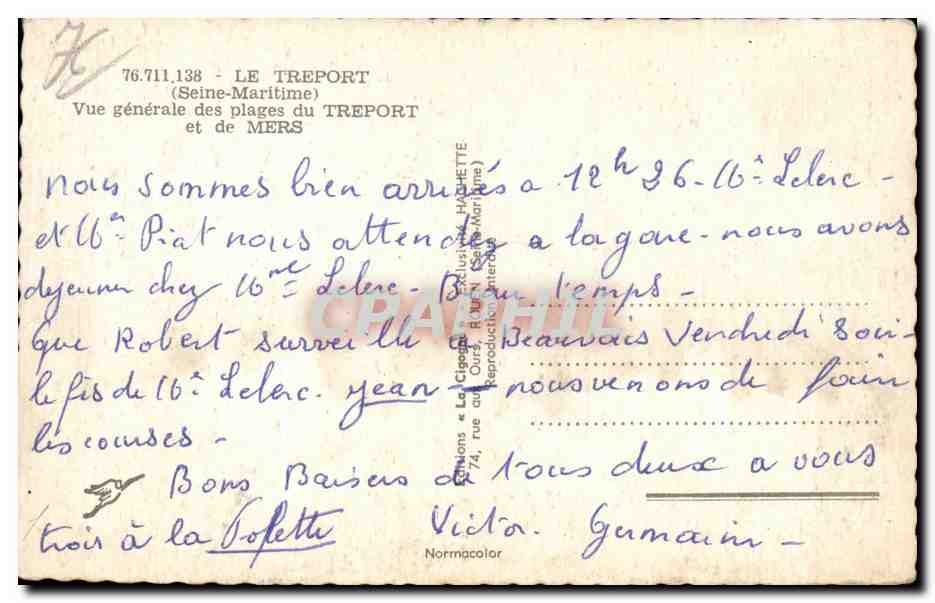 76.711.138 - LE TREPORT
(Seine-Maritime)
Vue générale des plages du TREPORT
et de MERS
nous sommes bien arrivés a 12h 26 - Mr Leclerc -
et Mr Piat nous attendez a la gare - nous avons
dejeuner chez Mme Leclerc - Beau temps -
que Robert surveille a Beauvais Vendredi Soir -
le fis de Mr Leclerc. Jean - nous venons de fair
les courses -
Bons Baisers de tous deux a vous
trois à la
Victor. Germain -
Editions « La Cigogne » Exclusivité HACHETTE
74, rue aux Ours, ROUEN (Seine-Maritime)
Reproduction Interdite
Normacolor
CPAPHIL